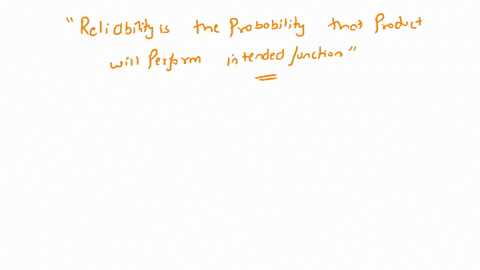 "Reliability is the Probobility that Product
will Perform intended function"